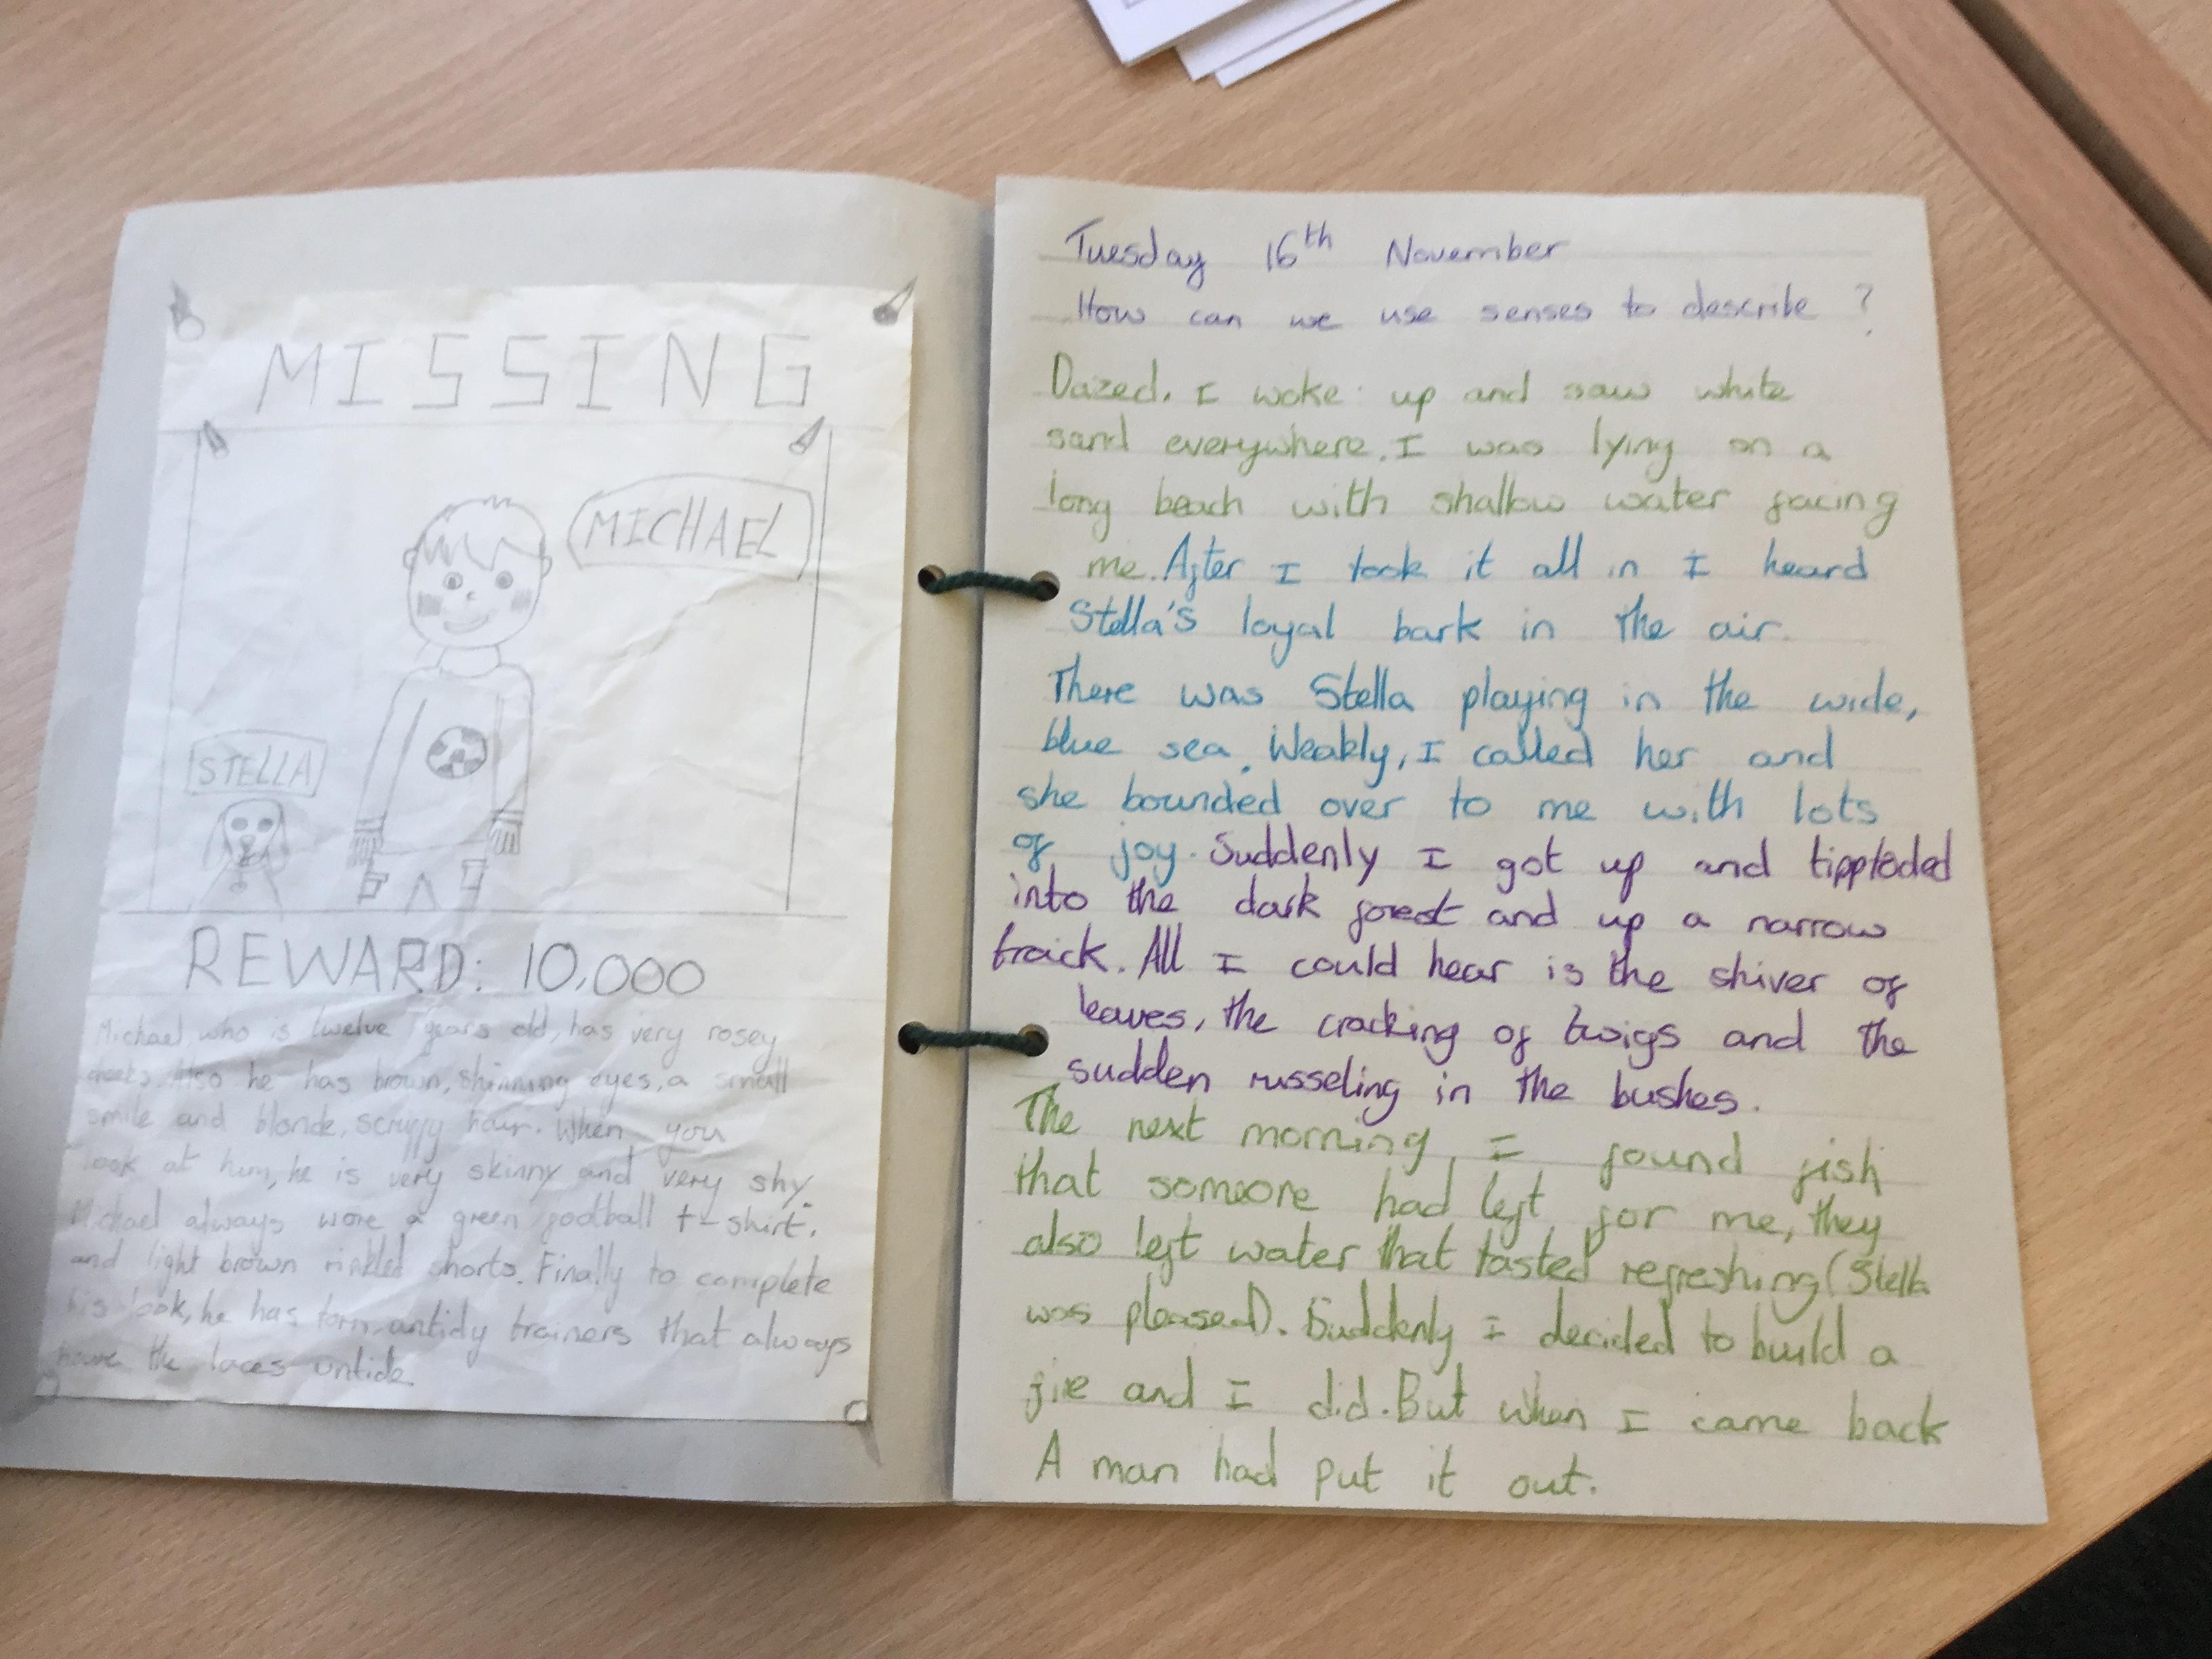 MISSING
MICHAEL
STELLA
REWARD: 10,000
Michael, who is twelve years old, has very rosey
cheeks. Also he has brown, shinning eyes, a small
smile and blonde, scruffy hair. When you
look at him, he is very skinny and very shy.
Michael always wore a green football t-shirt.
and light brown rinkled shorts. Finally to complete
his look, he has torn, untidy trainers that always
have the laces untide.
Tuesday 16th November
How can we use senses to describe?
Dazed, I woke up and saw white
sand everywhere. I was lying on a
long beach with shallow water facing
me. After I took it all in I heard
Stella's loyal bark in the air.
There was Stella playing in the wide,
blue sea. Weakly, I called her and
she bounded over to me with lots
of joy. Suddenly I got up and tipptoded
into the dark forest and up a narrow
traick. All I could hear is the shiver of
leaves, the cracking of twigs and the
sudden russeling in the bushes.
The next morning, I found fish
that someone had left for me, they
also left water that tasted refreshing (Stella
was pleased). Suddenly I decided to build a
fire and I did. But when I came back
A man had put it out.